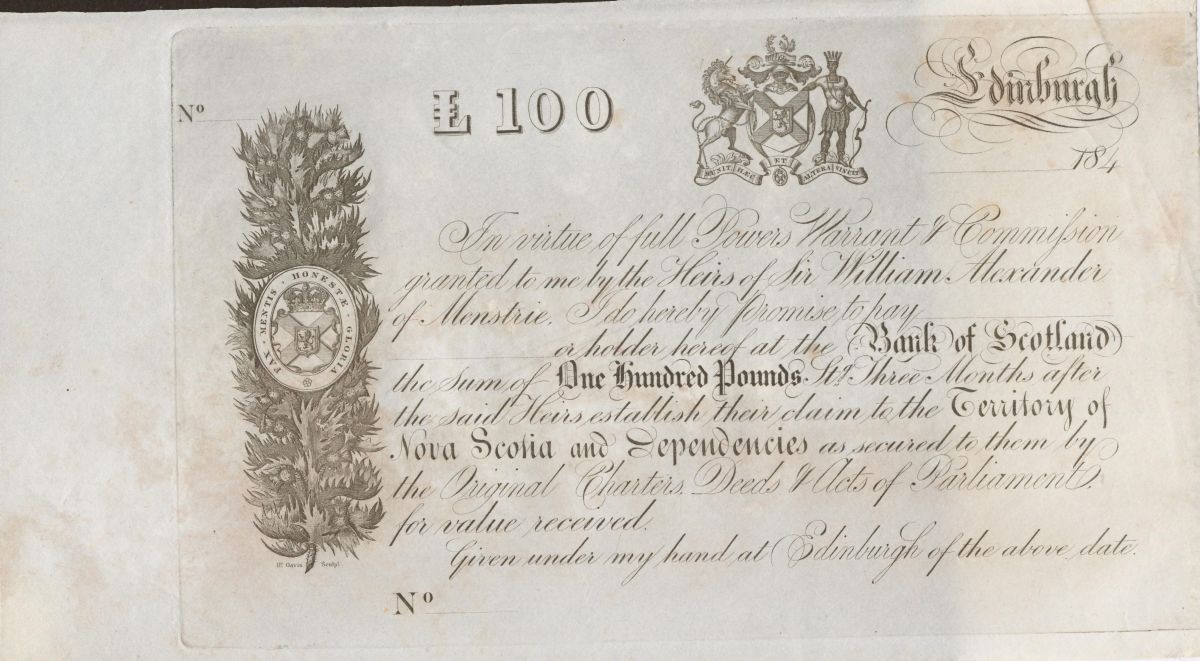 Nº
£ 100
MUNIT HÆC ET ALTERA VINCIT
Edinburgh
184
PAX · MENTIS · HONESTÆ · GLORIA
In virtue of full Powers Warrant & Commission
granted to me by the Heirs of Sir William Alexander
of Menstrie, I do hereby promise to pay
or holder hereof at the Bank of Scotland
the Sum of One Hundred Pounds Stg Three Months after
the said Heirs establish their claim to the Territory of
Nova Scotia and Dependencies as secured to them by
the Original Charters, Deeds & Acts of Parliament,
for value received.
Given under my hand at Edinburgh of the above date.
Gavin Sculpt
Nº